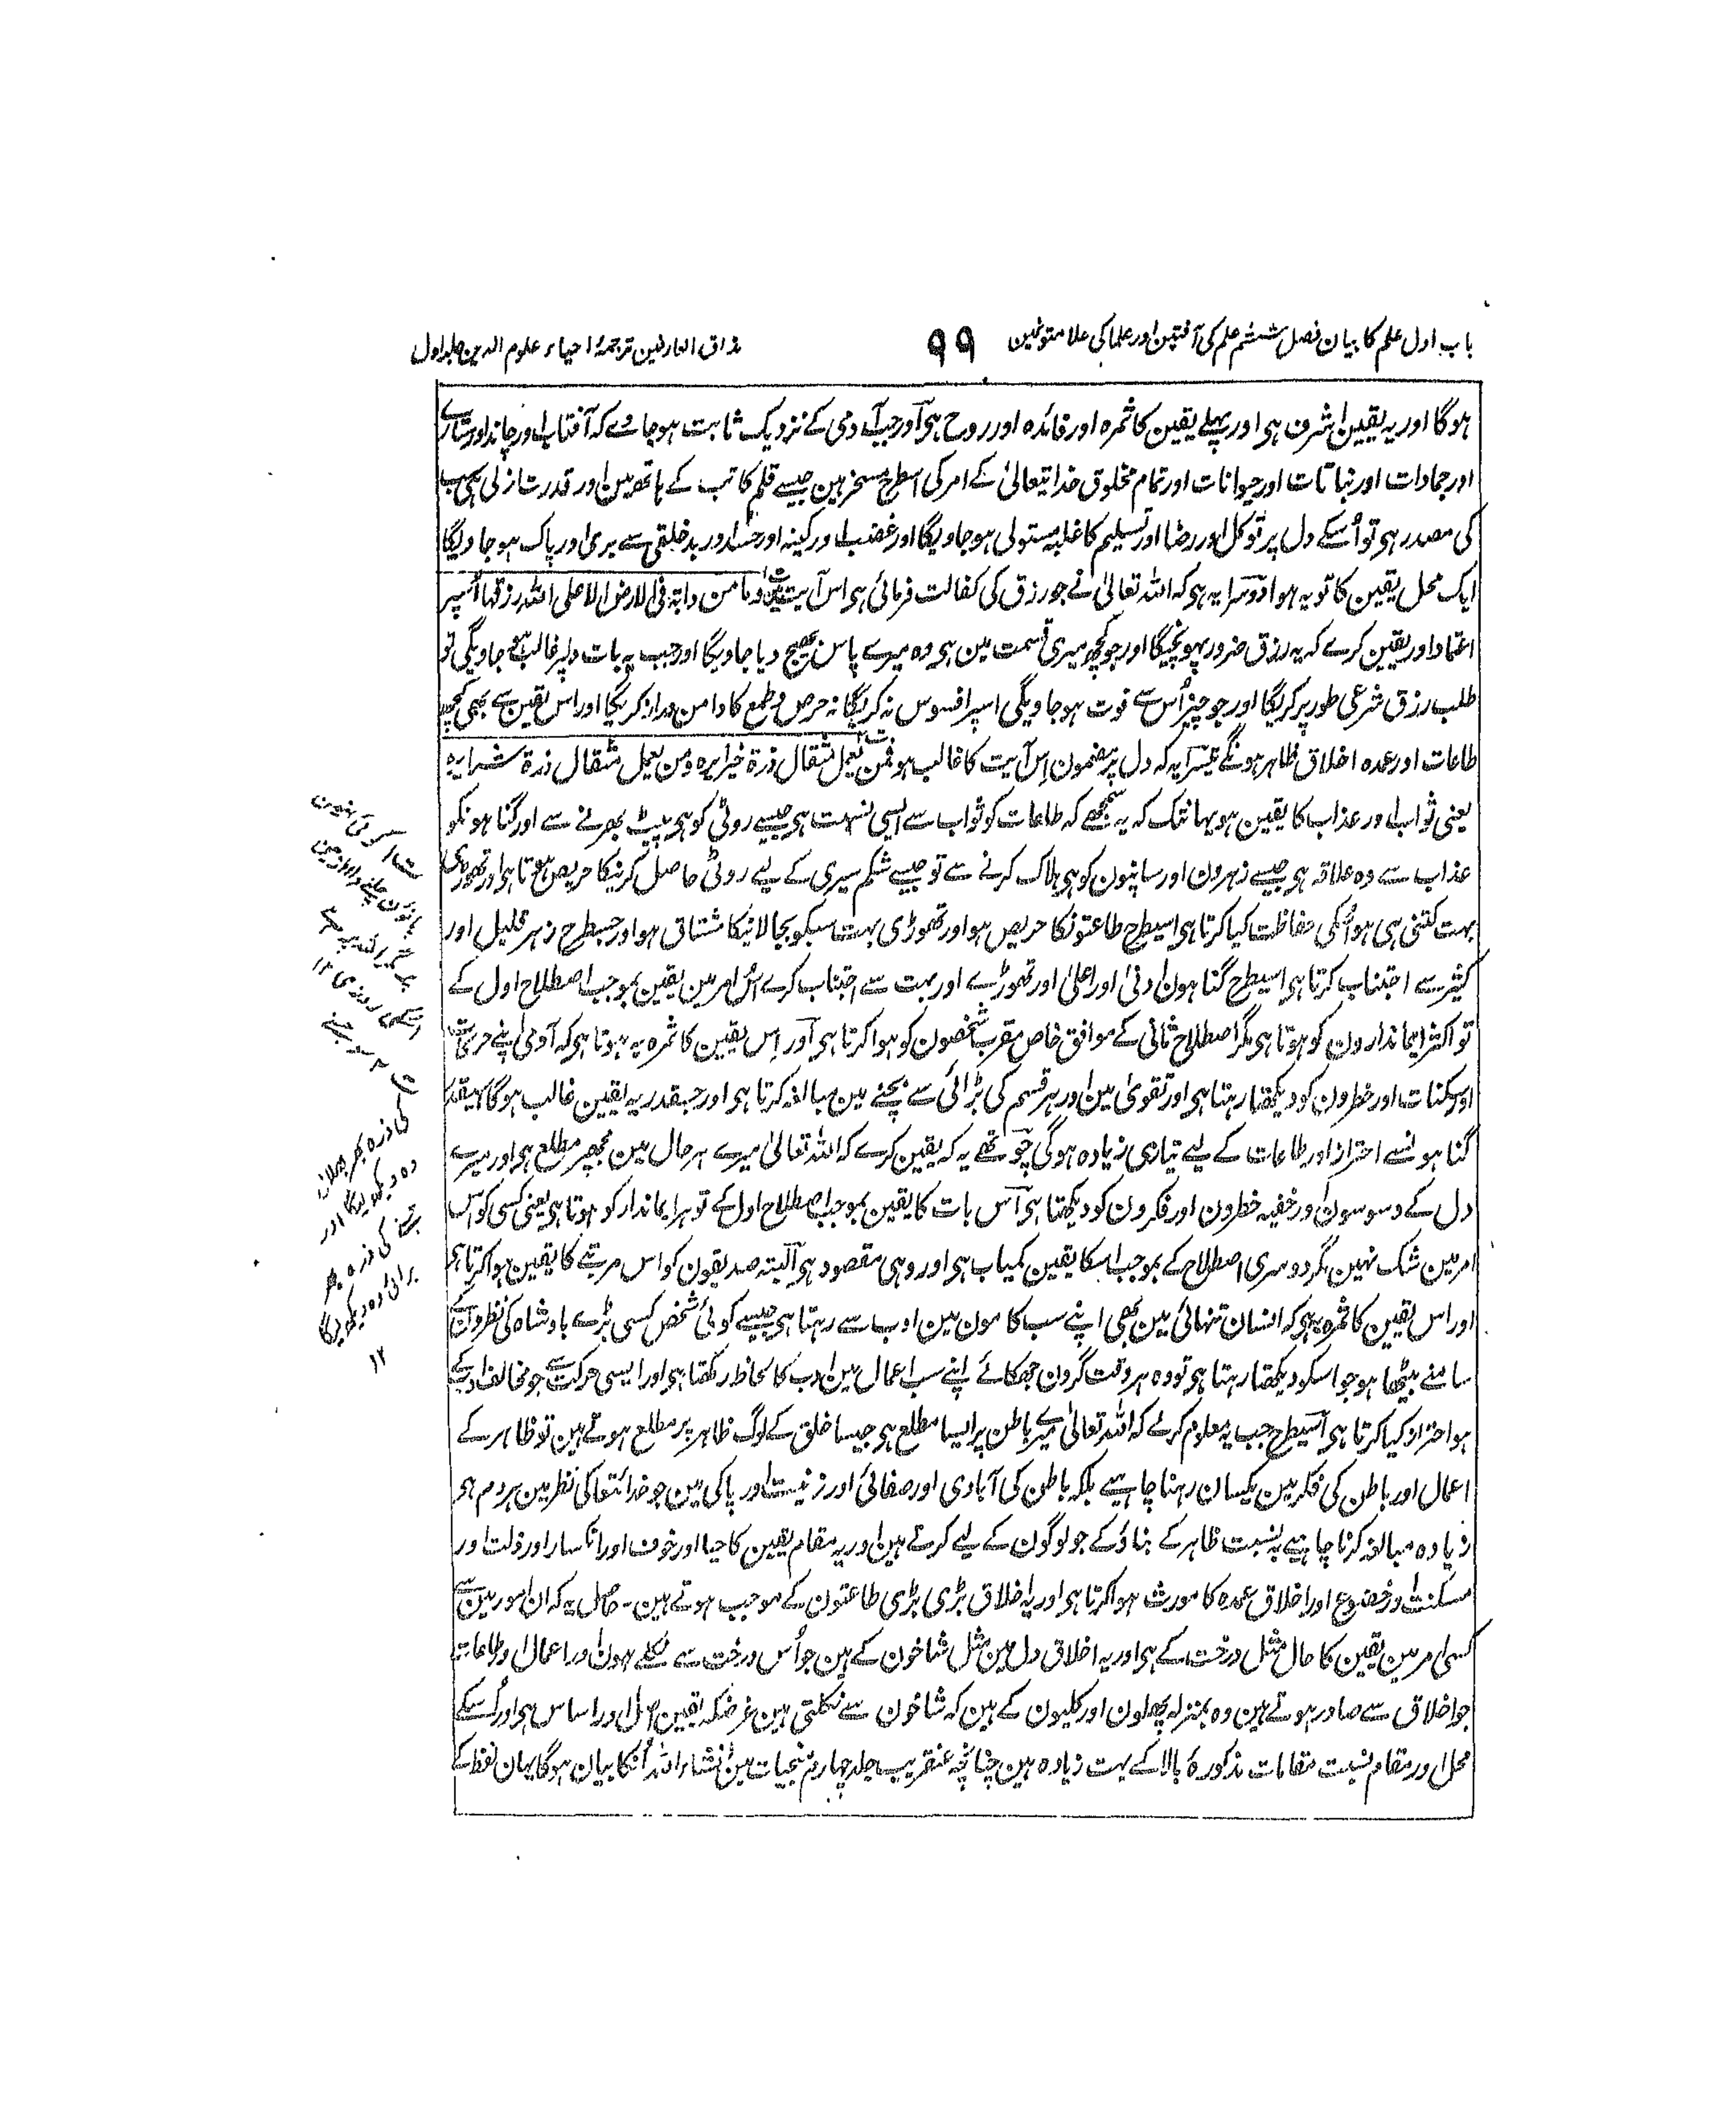 باب اول علم کا بیان فصل ششم علم کی آفتین اور علما کی علامتونمین
۹۹
مذاق العارفین ترجمۂ احیاء علوم الدین جلد اول
ہوگا اور یہ یقین اشرف ہی اور پہلے یقین کا ثمرہ اور فائدہ اور روح ہی اور جب آدمی کے نزدیک ثابت ہوجاے کہ آفتاب اور چاند اور ستارے
اور جمادات اور نباتات اور حیوانات اور تمام مخلوق خدایتعالیٰ کے امر کی اسطرح مسخر ہین جیسے قلم کاتب کے ہاتھ مین اور قدرت ازلی ہی سب
کی مصدر ہی تو اُسکے دل پر توکل اور رضا اور تسلیم کا غلبہ مستولی ہوجاویگا اور غضب اور کینہ اور حسد اور بدخلقی سے بری اور پاک ہوجاویگا
ایک محل یقین کا تو یہ ہوا دوسرا یہ ہی کہ اللہ تعالیٰ نے جو رزق کی کفالت فرمائی ہی اس آیت مین وما من دابۃ فی الارض الا علی اللہ رزقہا اُسپر
اعتماد اور یقین کرے کہ یہ رزق ضرور پہونچیگا اور جو کچھ میری قسمت مین ہی وہ میرے پاس بھیج دیا جاویگا اور جب یہ بات دلپر غالب ہو جاویگی تو
طلب رزق شرعی طور پر کریگا اور جو چیز اُس سے فوت ہوجاویگی اسپر افسوس نہ کریگا نہ حرص وطمع کا دامن دراز کریگا اور اس یقین سے بھی کچھ
طاعات اور عمدہ اخلاق ظاہر ہونگے تیسرا یہ کہ دل پر مضمون اِس آیت کا غالب ہو فمن یعمل مثقال ذرۃ خیرا یرہ ومن یعمل مثقال ذرۃ شرا یرہ
یعنی ثواب اور عذاب کا یقین ہو یہانتک کہ یہ سمجھے کہ طاعات کو ثواب سے ایسی نسبت ہی جیسے روٹی کو ہی پیٹ بھرنے سے اور گناہونکو
عذاب سے وہ علاقہ ہی جیسے زہرون اور سانپون کو ہی ہلاک کرنے سے تو جیسے شکم سیری کے لیے روٹی حاصل کرنیکا حریص ہوتا ہی اور تھوڑی
بہت کتنی ہی ہو اُسکی حفاظت کیا کرتا ہی اسیطرح طاعتونکا حریص ہو اور تھوڑی بہت سبکو بجالانیکا مشتاق ہو اور جسطرح زہر قلیل اور
کثیر سے اجتناب کرتا ہی اسیطرح گناہون ادنیٰ اور اعلیٰ اور تھوڑے اور بہت سے اجتناب کرے اس امر مین یقین بموجب اصطلاح اول کے
تو اکثر ایماندارون کو ہوتا ہی مگر اصطلاح ثانی کے موافق خاص مقرب شخصون کو ہوا کرتا ہی اور اِس یقین کا ثمرہ یہ ہوتا ہی کہ آدمی اپنے حرکات
اور سکنات اور خطرون کو دیکھتا رہتا ہی اور تقویٰ مین اور ہر قسم کی بڑائی سے بچنے مین مبالغہ کرتا ہی اور جسقدر یہ یقین غالب ہوگا اسیقدر
گناہونسے احتراز اور طاعات کے لیے تیاری زیادہ ہوگی چوتھے یہ کہ یقین کرے کہ اللہ تعالیٰ میرے ہر حال مین مجھپر مطلع ہی اور میرے
دل کے وسوسون اور خفیہ خطرون اور فکرون کو دیکھتا ہی اس بات کا یقین بموجب اصطلاح اول کے تو ہر ایماندار کو ہوتا ہی یعنی کسی کو اس
امر مین شک نہین مگر دوسری اصطلاح کے بموجب اسکا یقین کمیاب ہی اور وہی مقصود ہی البتہ صدیقون کو اس مرتبے کا یقین ہوا کرتا ہی
اور اس یقین کا ثمرہ یہ ہی کہ انسان تنہائی مین بھی اپنے سب کامون مین ادب سے رہتا ہی جیسے کوئی شخص کسی بڑے بادشاہ کی نظرون کے
سامنے بیٹھا ہو جو اسکو دیکھتا رہتا ہی تو وہ ہر وقت گردن جھکائے اپنے سب اعمال مین ادب کا لحاظ رکھتا ہی اور ایسی حرکت سے جو مخالف ادب کے
ہو احتراز کیا کرتا ہی اسیطرح جب یہ معلوم کرے کہ اللہ تعالیٰ میرے باطن پر ایسا مطلع ہی جیسا خلق کے لوگ ظاہر پر مطلع ہوتے ہین تو ظاہر کے
اعمال اور باطن کی فکر مین یکسان رہنا چاہیے بلکہ باطن کی آبادی اور صفائی اور زینت اور پاکی مین جو خدایتعا کی نظر مین ہر دم ہی
زیادہ مبالغہ کرنا چاہیے بہ نسبت ظاہر کے بناؤ کے جو لوگون کے لیے کرتے ہین اور یہ مقام یقین کا حیا اور خوف اور انکسار اور ذلت اور
مسکنت اور خضوع اور اخلاق عمدہ کا مورث ہوا کرتا ہی اور یہ اخلاق بڑی بڑی طاعتون کے موجب ہوتے ہین۔ حاصل یہ کہ ان امور مین سے
کسی امر مین یقین کا حال مثل درخت کے ہی اور یہ اخلاق دل مین مثل شاخون کے ہین جو اُس درخت سے نکلے ہون اور اعمال وطاعات
جو اخلاق سے صادر ہوتے ہین وہ بمنزلہ پھلون اور کلیون کے ہین کہ شاخون سے نکلتی ہین غرضکہ یقین اصل اور اساس ہی اور اُسکے
محل اور مقام نسبت مقامات مذکورۂ بالا کے بہت زیادہ ہین چنانچہ عنقریب جلد چہارم منجیات مین انشاء اللہ اُنکا بیان ہوگا یہان لفظ کے
اور کوئی نہین
پانؤن چلنے والا زمین
مگر اللہ پر ہے
اسکی روزی ۱۲
جسنے
کی ذرہ بھر بھلائی
وہ دیکھ لیگا اور
جسنے کی ذرہ بھر
برائی وہ دیکھ لیگا
۱۲